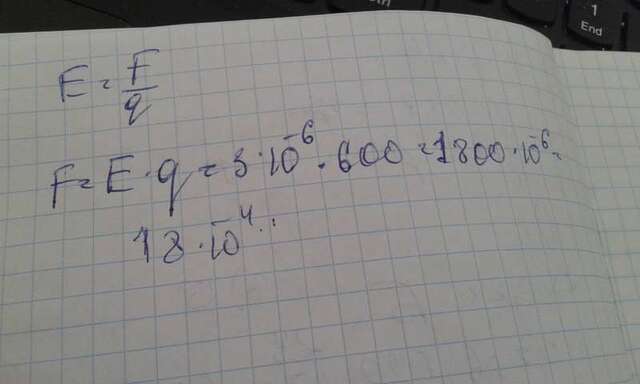 E = F/q
F = E · q = 3 · 10⁻⁶ · 600 = 1800 · 10⁻⁶ =
18 · 10⁻⁴
1
End